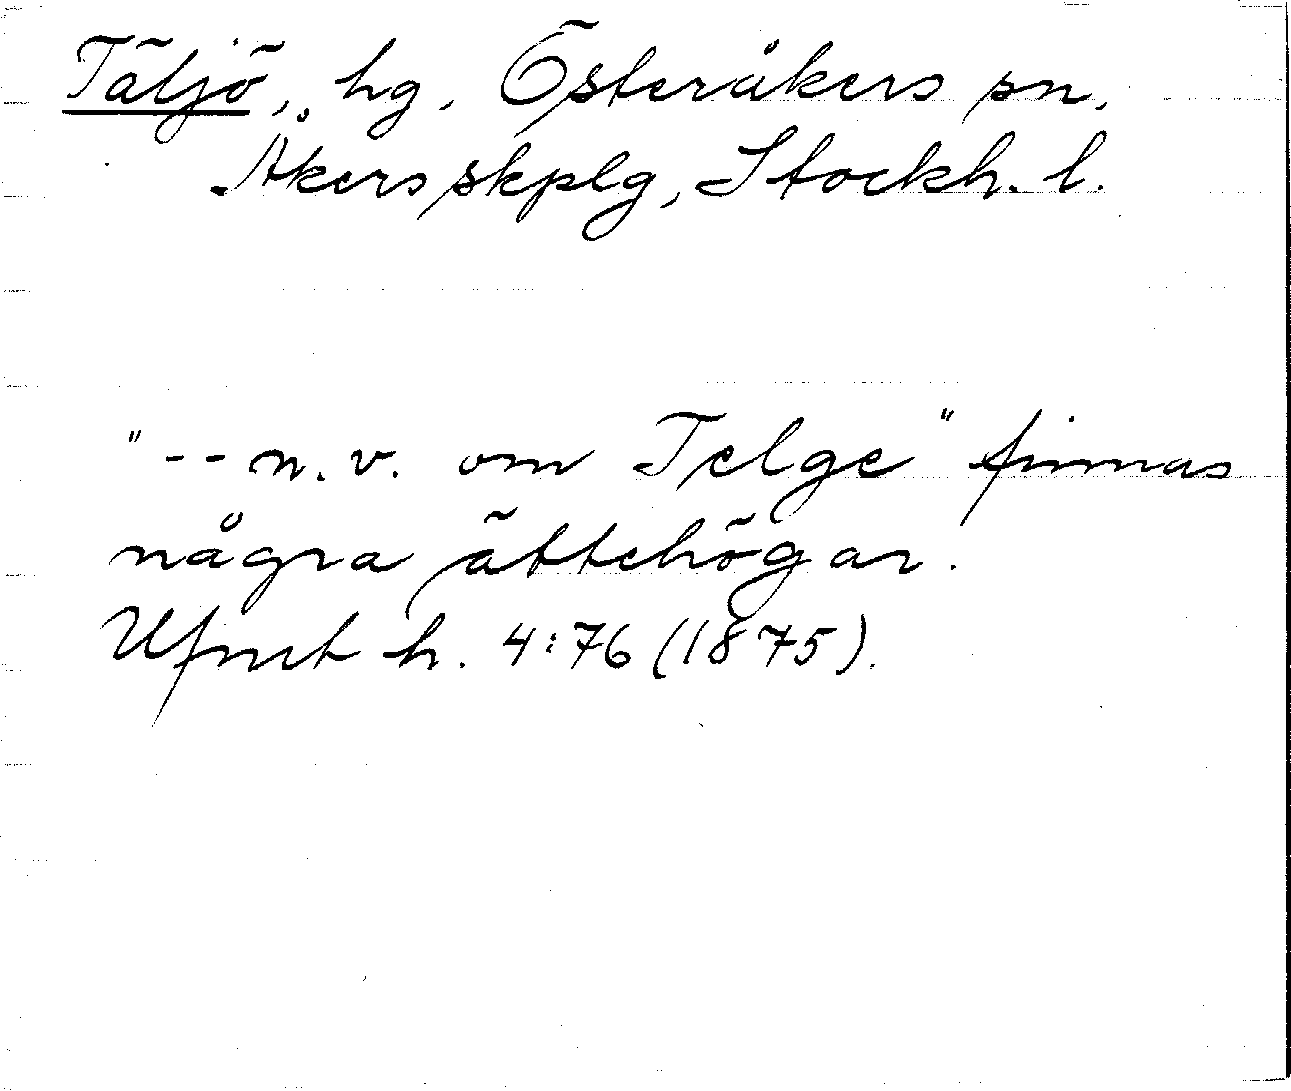 Täljö, hg, Österåkers sn,
Åkers skplg, Stockh. l.
"-- n.v. om Telge" finnas
några ättehögar.
Ufmt h. 4:76 (1875).